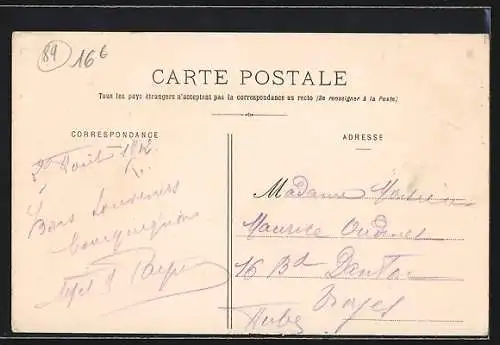 89
16€
CARTE POSTALE
Tous les pays étrangers n'acceptent pas la correspondance au recto (Se renseigner à la Poste)
CORRESPONDANCE
ADRESSE
Août
Bons Souvenirs
bourguignons
Madame Monsieur
Maurice Oudinet
16 Bd Danton
Troyes
Aube